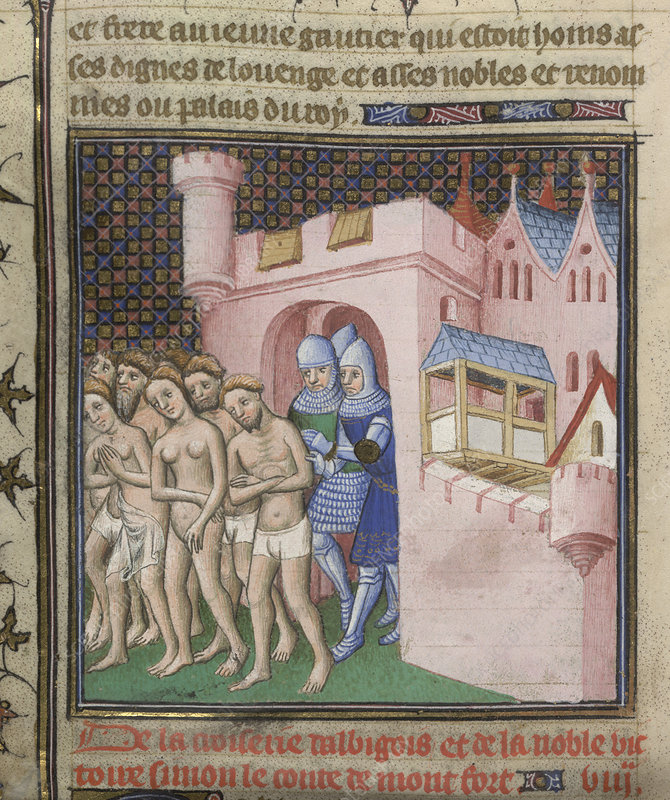 et frere auienne gautier qui estoit homs as
ses dignes de louenge et asses nobles et renom
mes ou palais du roy
De la croiserie dalbigois et de la noble vic
toire simon le conte de mont fort viij.